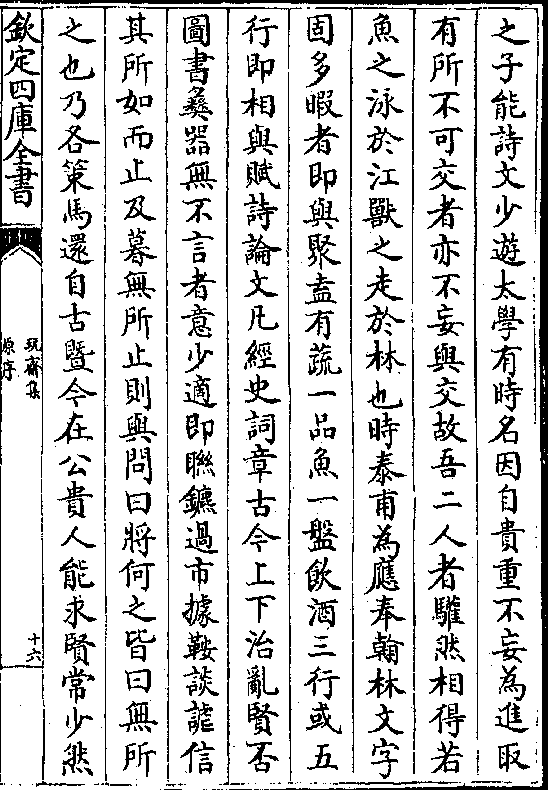 之子能詩文少遊太學有時名因自貴重不妄為進取
有所不可交者亦不妄與交故吾二人者驩然相得若
魚之泳於江獸之走於林也時泰甫為應奉翰林文字
固多暇者即與聚盍有蔬一品魚一盤飲酒三行或五
行即相與賦詩論文凡經史詞章古今上下治亂賢否
圖書彞器無不言者意少適即聯鑣過市據鞍談謔信
其所如而止及暮無所止則與問曰將何之皆曰無所
之也乃各策馬還自古暨今在公貴人能求賢常少然
欽定四庫全書
玩齋集
原序
十六